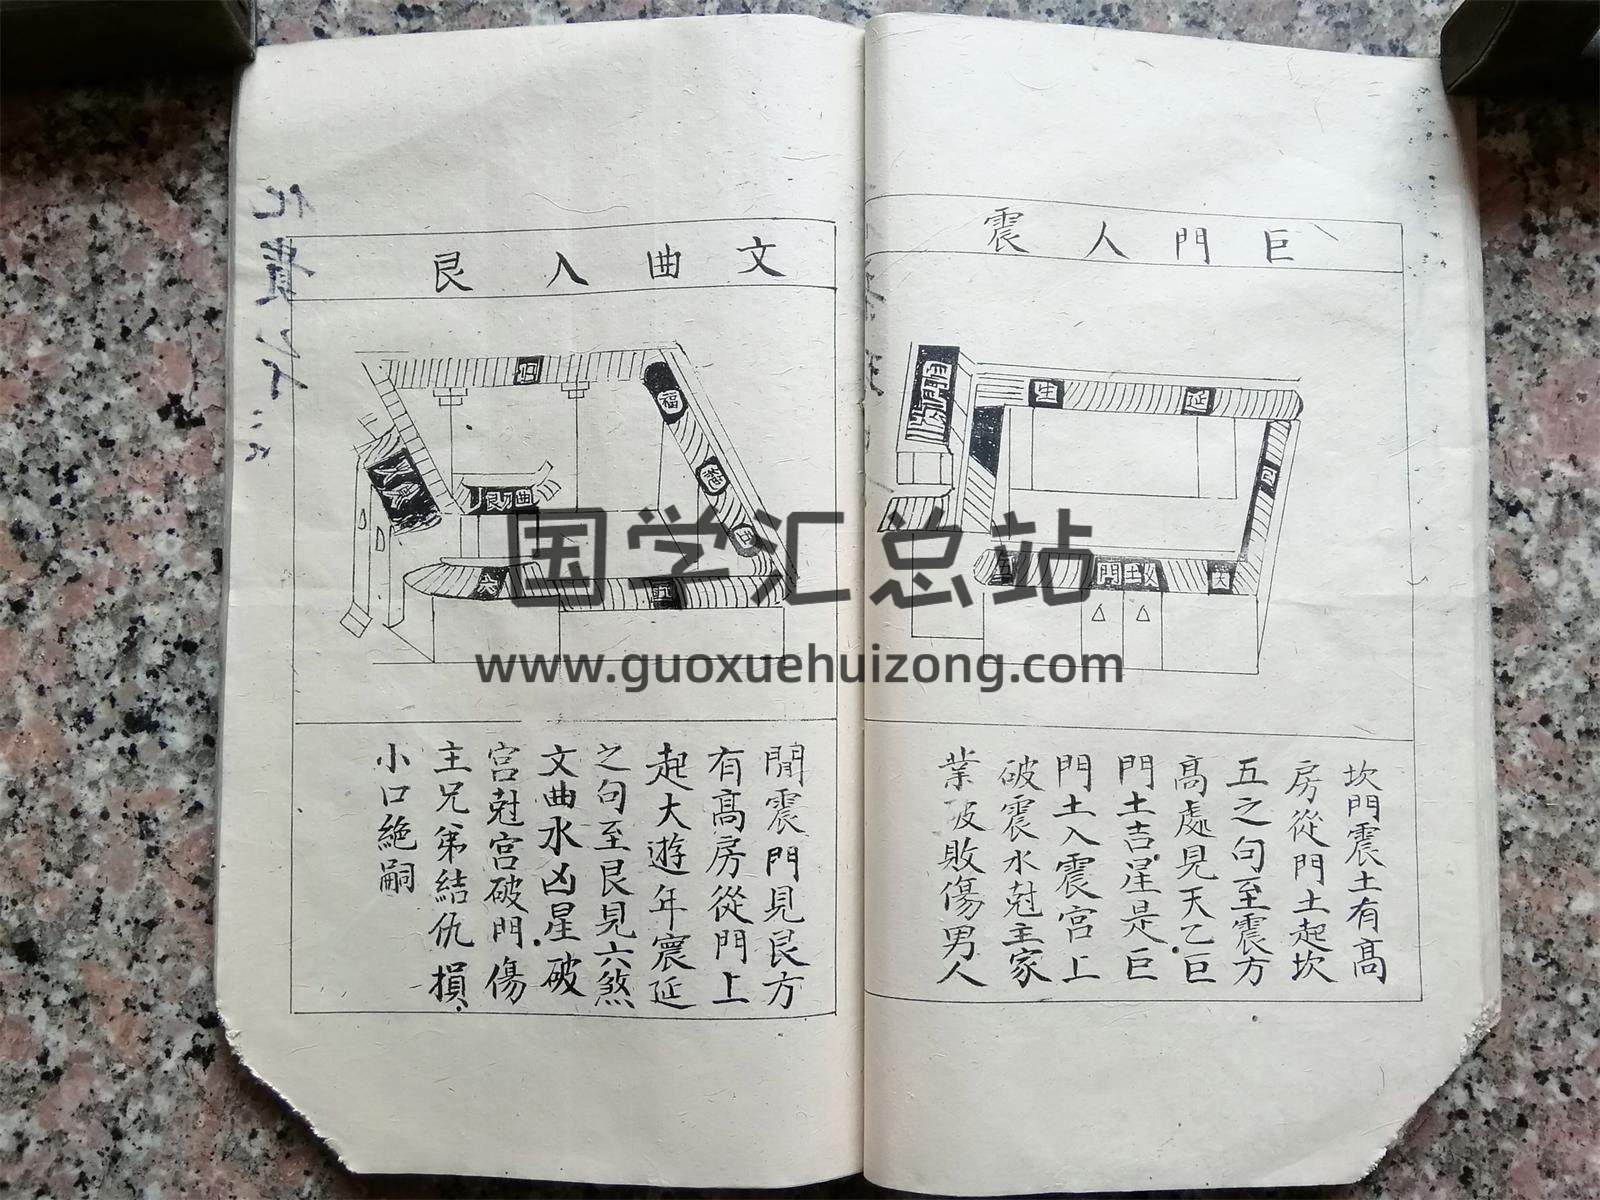 巨門入震
生
延
巳
五
門土攵
大
坎門震土有高
房從門土起坎
五之句至震方
高處見天乙巨
門土吉星是巨
門土入震宮上
破震水尅主家
業破敗傷男人
文曲入艮
福
艮乃曲
六
五
開震門見艮方
有高房從門上
起大遊年震延
之句至艮見六煞
文曲水凶星破
宮尅宮破門傷
主兄弟結仇損
小口絶嗣
国学汇总站
www.guoxuehuizong.com